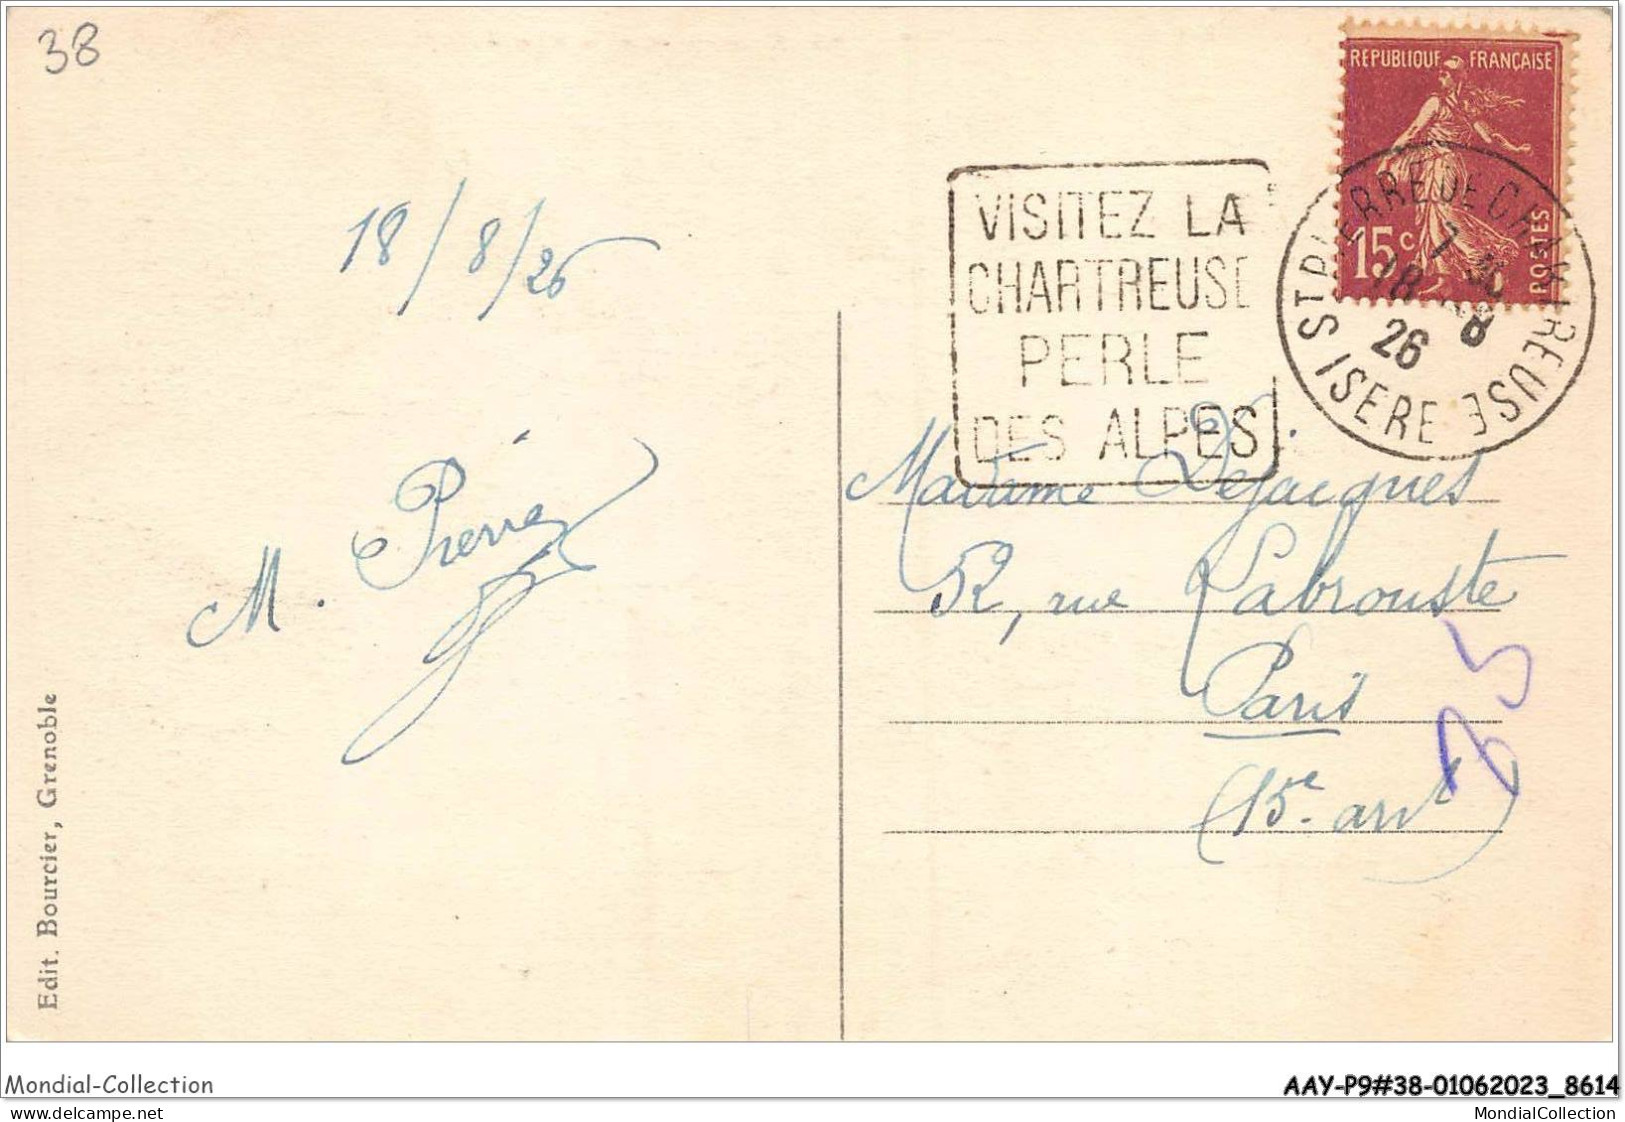 38
18/8/26
M. Pierre
Edit. Bourcier, Grenoble
VISITEZ LA
CHARTREUSE
PERLE
DES ALPES
REPUBLIQUE FRANÇAISE
15c
POSTES
ST PIERRE DE CHARTREUSE
18
8
26
ISERE
Madame Dejacques
52, rue Labrouste
Paris
(15e. arrt)
Mondial-Collection
AAY-P9#38-01062023_8614
delcampe.net
MondialCollection